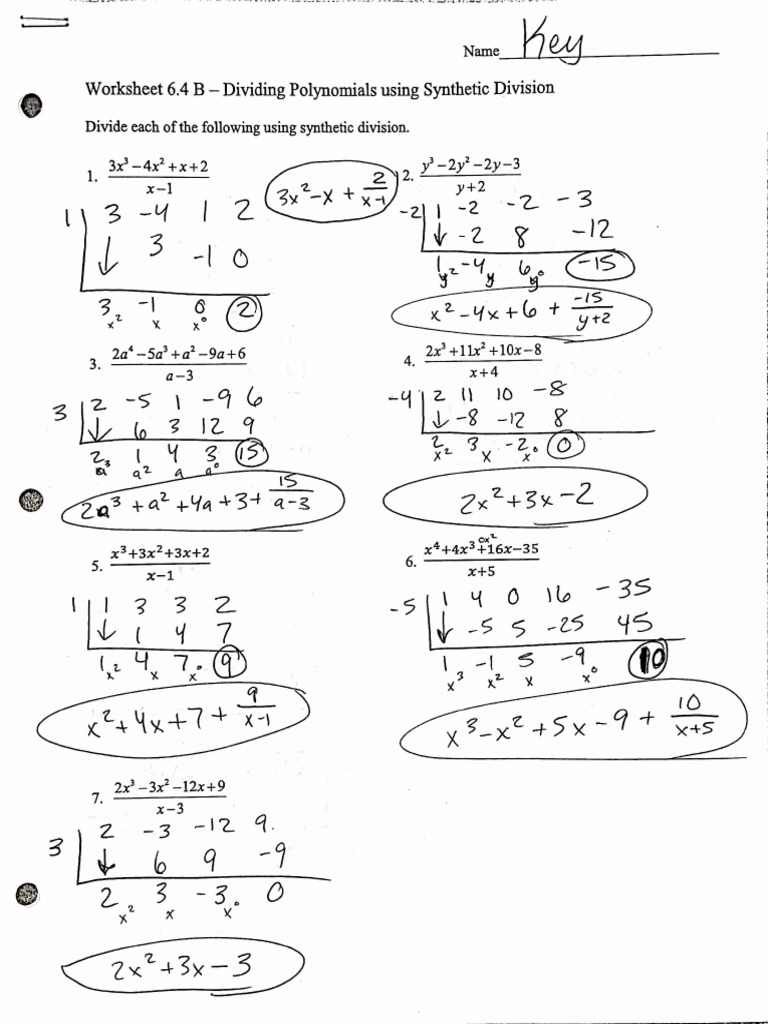 Name Key
Worksheet 6.4 B – Dividing Polynomials using Synthetic Division
Divide each of the following using synthetic division.
1. (3x³−4x²+x+2)/(x−1)
1 | 3 −4 1 2
↓ 3 −1 0
3 −1 0 2
x² x x⁰
3x²−x + 2/(x−1)
2. (y³−2y²−2y−3)/(y+2)
−2 | 1 −2 −2 −3
↓ −2 8 −12
1 −4 6 −15
y² y y⁰
x²−4x+6 + −15/(y+2)
3. (2a⁴−5a³+a²−9a+6)/(a−3)
3 | 2 −5 1 −9 6
↓ 6 3 12 9
2 1 4 3 15
a³ a² a a⁰
2a³+a²+4a+3+ 15/(a−3)
4. (2x³+11x²+10x−8)/(x+4)
−4 | 2 11 10 −8
↓ −8 −12 8
2 3 −2 0
x² x x⁰
2x²+3x−2
5. (x³+3x²+3x+2)/(x−1)
1 | 1 3 3 2
↓ 1 4 7
1 4 7 9
x² x x⁰
x²+4x+7+ 9/(x−1)
6. (x⁴+4x³+16x−35)/(x+5)
0x²
−5 | 1 4 0 16 −35
↓ −5 5 −25 45
1 −1 5 −9 10
x³ x² x x⁰
x³−x²+5x−9+ 10/(x+5)
7. (2x³−3x²−12x+9)/(x−3)
3 | 2 −3 −12 9
↓ 6 9 −9
2 3 −3 0
x² x x⁰
2x²+3x−3